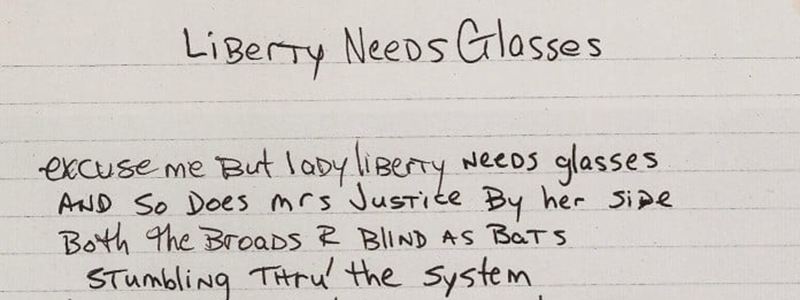 Liberty Needs Glasses
excuse me But lady liberty needs glasses
AND So Does mrs Justice By her side
Both the Broads R BLIND AS BaTS
STumbling Thru' the system